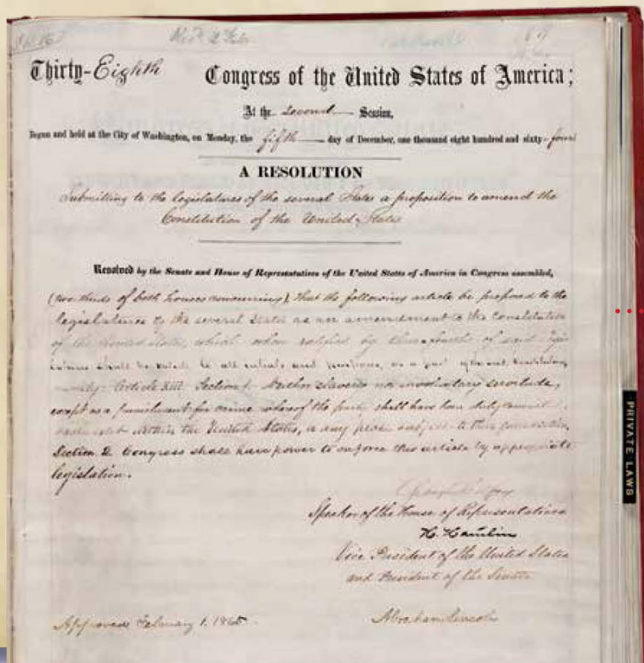 Thirty-Eighth Congress of the United States of America;
At the second Session,
Begun and held at the City of Washington, on Monday, the fifth day of December, one thousand eight hundred and sixty-four
A RESOLUTION
Submitting to the legislatures of the several States a proposition to amend the
Constitution of the United States
Resolved by the Senate and House of Representatives of the United States of America in Congress assembled,
(two thirds of both houses concurring), that the following article be proposed to the
legislatures of the several States as an amendment to the Constitution
of the United States, which when ratified by three fourths of said legis
latures shall be valid, to all intents and purposes, as a part of the said Constitution
namely: Article XIII. Section 1. Neither slavery nor involuntary servitude,
except as a punishment for crime whereof the party shall have been duly convict
within the United States, or any place subject to their jurisdiction
Section 2. Congress shall have power to enforce this article by appropriate
legislation.
Speaker of the House of Representatives
H. Hamlin
Vice President of the United States
and President of the Senate
Approved February 1. 1865
Abraham Lincoln
PRIVATE LAWS